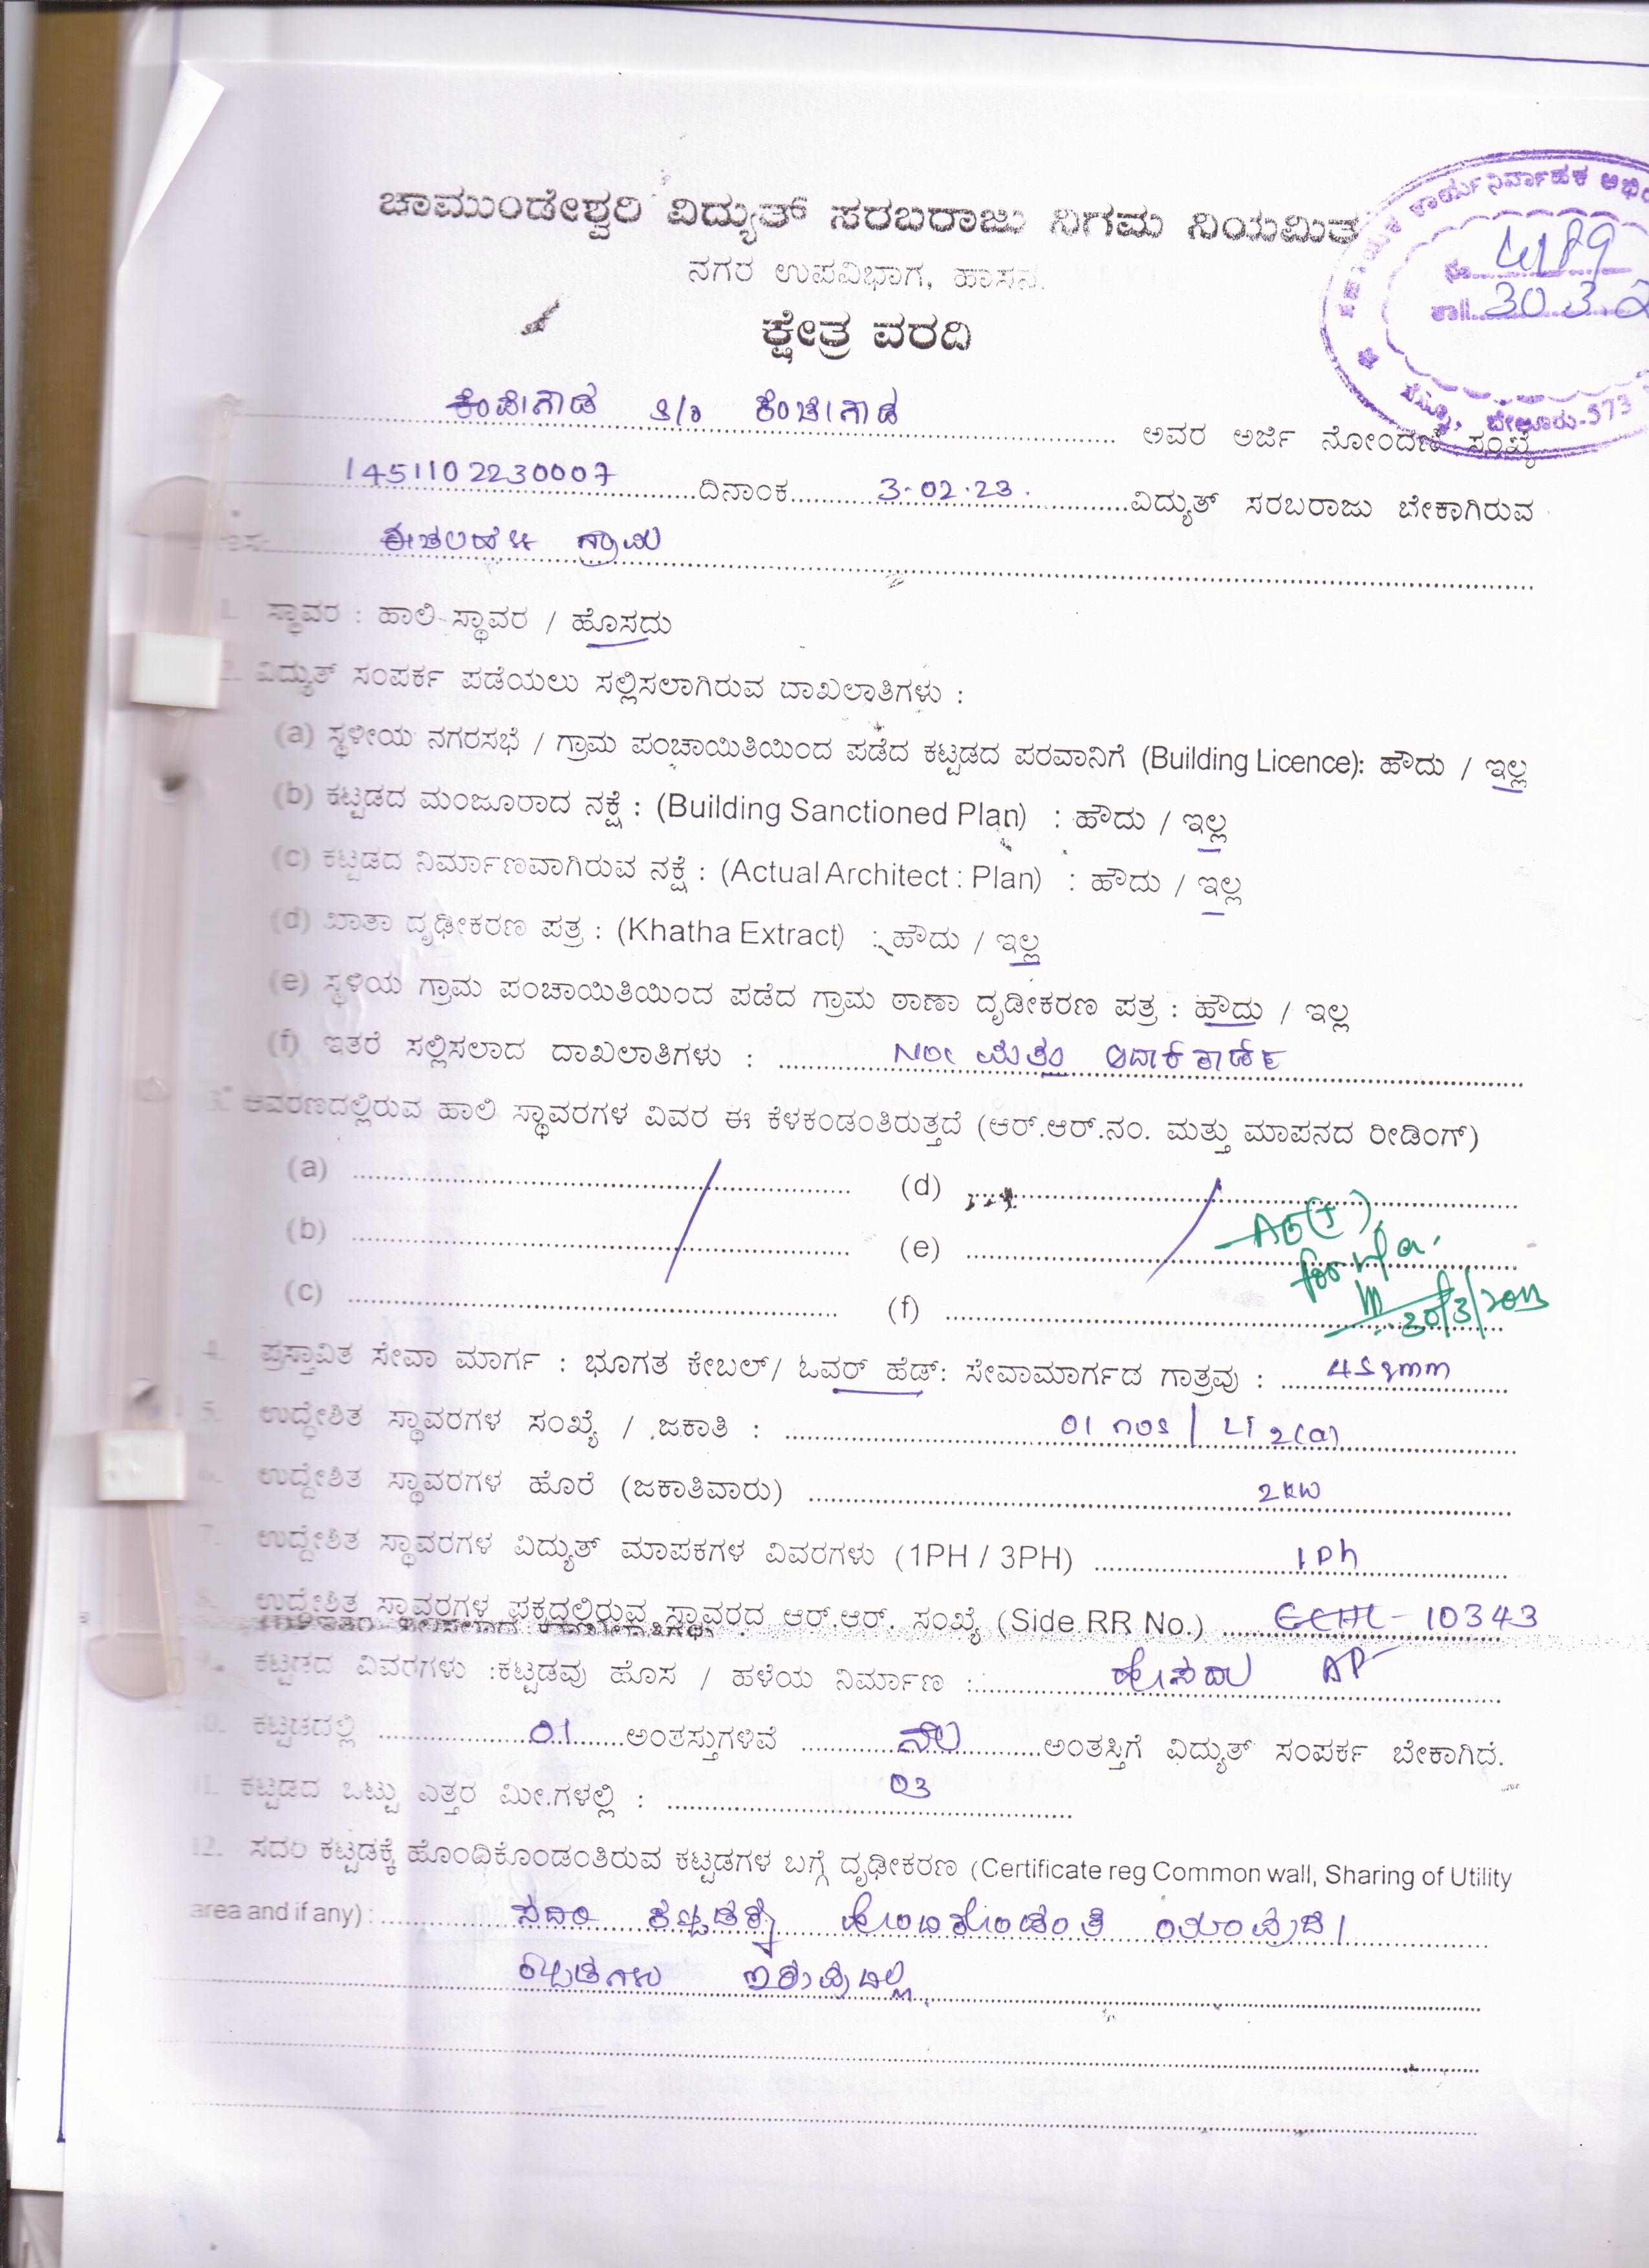 ಚಾಮುಂಡೇಶ್ವರಿ ವಿದ್ಯುತ್ ಸರಬರಾಜು ನಿಗಮ ನಿಯಮಿತ
ನಗರ ಉಪವಿಭಾಗ, ಹಾಸನ.
ಕಾರ್ಯನಿರ್ವಾಹಕ
4189
30.3.2
ಬೇಲೂರು-573
ಕ್ಷೇತ್ರ ವರದಿ
ಕೆಂಪೇಗೌಡ S/o ಕೆಂಚೇಗೌಡ ಅವರ ಅರ್ಜಿ ನೋಂದಣಿ ಸಂಖ್ಯೆ
1451102230007 ದಿನಾಂಕ 3.02.23. ವಿದ್ಯುತ್ ಸರಬರಾಜು ಬೇಕಾಗಿರುವ
ಗ್ರಾಮ
1. ಸ್ಥಾವರ : ಹಾಲಿ ಸ್ಥಾವರ / ಹೊಸದು
2. ವಿದ್ಯುತ್ ಸಂಪರ್ಕ ಪಡೆಯಲು ಸಲ್ಲಿಸಲಾಗಿರುವ ದಾಖಲಾತಿಗಳು :
(a) ಸ್ಥಳೀಯ ನಗರಸಭೆ / ಗ್ರಾಮ ಪಂಚಾಯಿತಿಯಿಂದ ಪಡೆದ ಕಟ್ಟಡದ ಪರವಾನಿಗೆ (Building Licence): ಹೌದು / ಇಲ್ಲ
(b) ಕಟ್ಟಡದ ಮಂಜೂರಾದ ನಕ್ಷೆ : (Building Sanctioned Plan) : ಹೌದು / ಇಲ್ಲ
(c) ಕಟ್ಟಡದ ನಿರ್ಮಾಣವಾಗಿರುವ ನಕ್ಷೆ : (Actual Architect : Plan) : ಹೌದು / ಇಲ್ಲ
(d) ಖಾತಾ ದೃಢೀಕರಣ ಪತ್ರ : (Khatha Extract) : ಹೌದು / ಇಲ್ಲ
(e) ಸ್ಥಳಿಯ ಗ್ರಾಮ ಪಂಚಾಯಿತಿಯಿಂದ ಪಡೆದ ಗ್ರಾಮ ಠಾಣಾ ದೃಡೀಕರಣ ಪತ್ರ : ಹೌದು / ಇಲ್ಲ
(f) ಇತರೆ ಸಲ್ಲಿಸಲಾದ ದಾಖಲಾತಿಗಳು : ಮತ್ತು
3. ಆವರಣದಲ್ಲಿರುವ ಹಾಲಿ ಸ್ಥಾವರಗಳ ವಿವರ ಈ ಕೆಳಕಂಡಂತಿರುತ್ತದೆ (ಆರ್.ಆರ್.ನಂ. ಮತ್ತು ಮಾಪನದ ರೀಡಿಂಗ್)
(a) (d)
(b) (e)
(c) (f)
30/3/2023
4. ಪ್ರಸ್ತಾವಿತ ಸೇವಾ ಮಾರ್ಗ : ಭೂಗತ ಕೇಬಲ್/ ಓವರ್ ಹೆಡ್: ಸೇವಾಮಾರ್ಗದ ಗಾತ್ರವು : 4Sqmm
5. ಉದ್ಧೇಶಿತ ಸ್ಥಾವರಗಳ ಸಂಖ್ಯೆ / ಜಕಾತಿ : 01 nos | LT 2(a)
6. ಉದ್ದೇಶಿತ ಸ್ಥಾವರಗಳ ಹೊರೆ (ಜಕಾತಿವಾರು) 2KW
7. ಉದ್ದೇಶಿತ ಸ್ಥಾವರಗಳ ವಿದ್ಯುತ್ ಮಾಪಕಗಳ ವಿವರಗಳು (1PH / 3PH) 1Ph
8. ಉದ್ದೇಶಿತ ಸ್ಥಾವರಗಳ ಪಕ್ಕದಲ್ಲಿರುವ ಸ್ಥಾವರದ ಆರ್.ಆರ್. ಸಂಖ್ಯೆ (Side RR No.) 10343
9. ಕಟ್ಟಡದ ವಿವರಗಳು :ಕಟ್ಟಡವು ಹೊಸ / ಹಳೆಯ ನಿರ್ಮಾಣ : ಹೊಸದು
10. ಕಟ್ಟಡದಲ್ಲಿ 01 ಅಂತಸ್ತುಗಳಿವೆ ನೆಲ ಅಂತಸ್ತಿಗೆ ವಿದ್ಯುತ್ ಸಂಪರ್ಕ ಬೇಕಾಗಿದೆ.
11. ಕಟ್ಟಡದ ಒಟ್ಟು ಎತ್ತರ ಮೀ.ಗಳಲ್ಲಿ : 03
12. ಸದರಿ ಕಟ್ಟಡಕ್ಕೆ ಹೊಂದಿಕೊಂಡಂತಿರುವ ಕಟ್ಟಡಗಳ ಬಗ್ಗೆ ದೃಢೀಕರಣ (Certificate reg Common wall, Sharing of Utility
area and if any) : ಸದರಿ ಕಟ್ಟಡಕ್ಕೆ ಹೊಂದಿಕೊಂಡಂತೆ ಯಾವುದೇ
ಕಟ್ಟಡಗಳು ಇರುವುದಿಲ್ಲ.